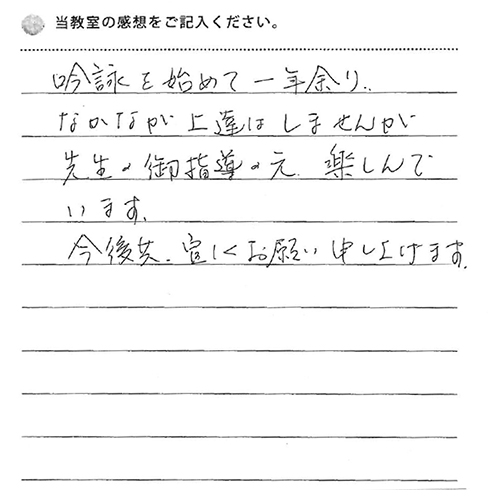 当教室の感想をご記入ください。
吟詠を始めて一年余り、
なかなか上達はしませんが
先生の御指導の元、楽しんで
います。
今後共、宜しくお願い申し上げます。